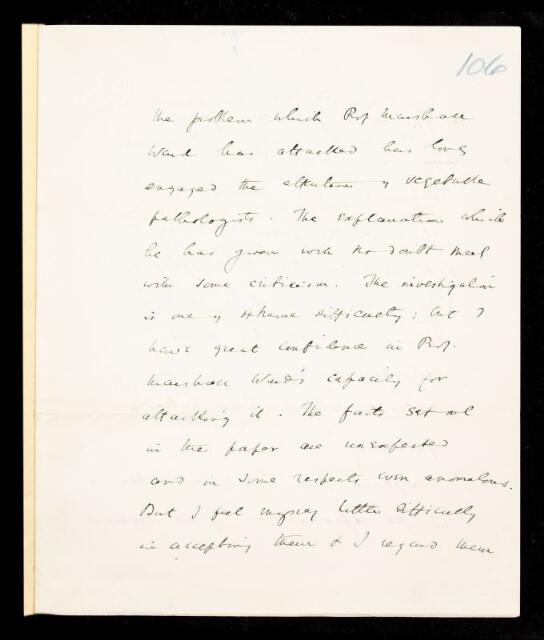 106
The problem which Prof Marshall
Ward has attacked has long
engaged the attention of vegetable
pathologists. The explanation which
he has given will no doubt meet
with some criticism. The investigation
is one of extreme difficulty; but I
have great confidence in Prof.
Marshall Ward's capacity for
attacking it. The facts set out
in the paper are unexpected
and in some respects even anomalous.
But I feel myself little difficulty
in accepting them & I regard them